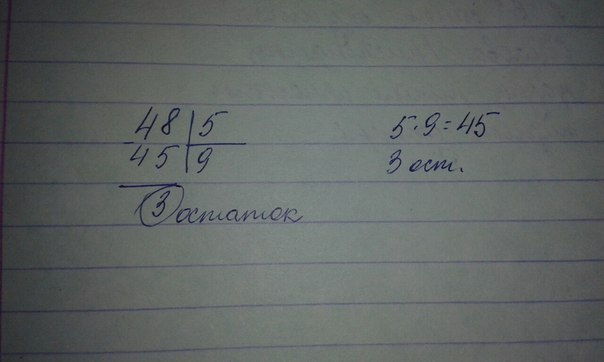 48 5
45 9
3 остаток
5·9=45
3 ост.